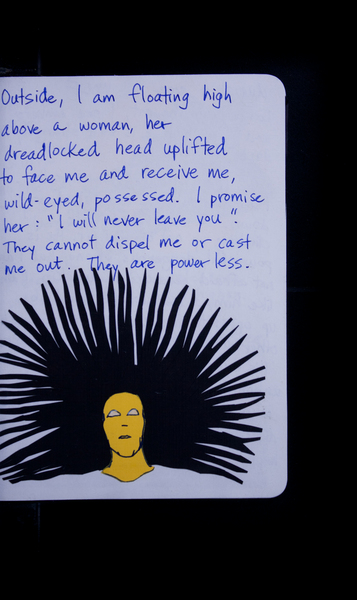 Outside, I am floating high
above a woman, her
dreadlocked head uplifted
to face me and receive me,
wild-eyed, possessed. I promise
her: "I will never leave you".
They cannot dispel me or cast
me out. They are powerless.